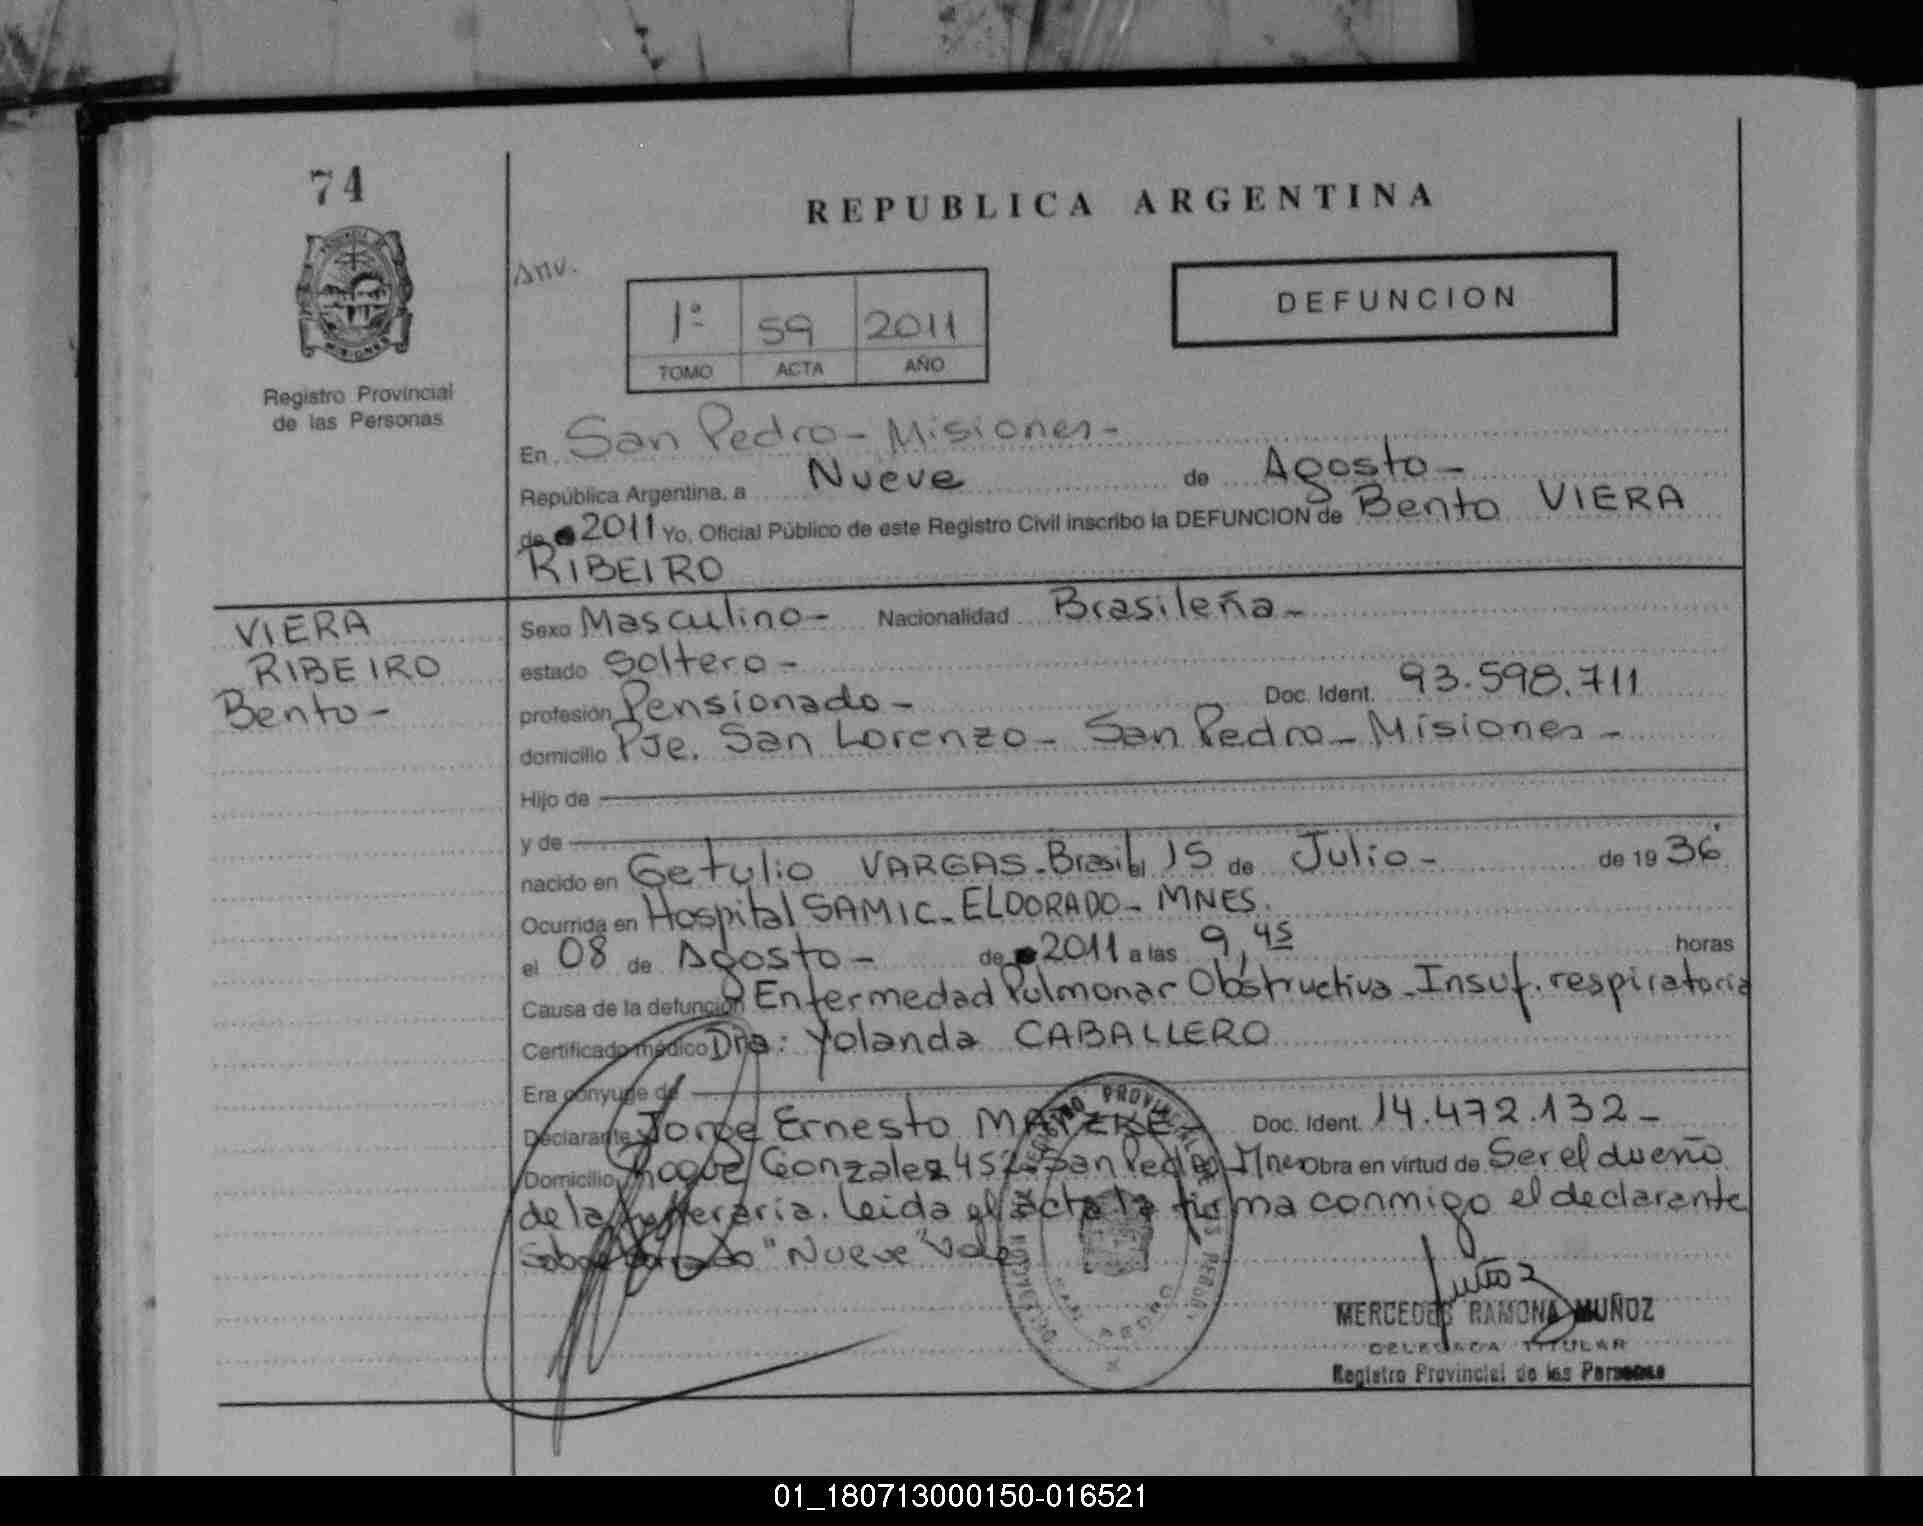 74
REPUBLICA ARGENTINA
Anv.
DEFUNCION
1º 59 2011
TOMO ACTA AÑO
MISIONES
Registro Provincial
de las Personas
En San Pedro - Misiones -
República Argentina, a Nueve de Agosto -
de 2011 Yo, Oficial Público de este Registro Civil inscribo la DEFUNCION de Bento VIERA
RIBEIRO
VIERA
RIBEIRO
Bento -
Sexo Masculino - Nacionalidad Brasileña -
estado Soltero -
profesión Pensionado - Doc. Ident. 93.598.711
domicilio Pje. San Lorenzo - San Pedro - Misiones -
Hijo de
y de
nacido en Getulio VARGAS - Brasil el 15 de Julio - de 19 36
Ocurrida en Hospital SAMIC - ELDORADO - MNES.
el 08 de Agosto - de 2011 a las 9,45 horas
Causa de la defunción Enfermedad Pulmonar Obstructiva - Insuf. respiratoria
Certificado médico Dra: Yolanda CABALLERO
Era cónyuge de
Declarante Jorge Ernesto MATZKE - Doc. Ident. 14.472.132 -
Domicilio Roque Gonzalez 452 - San Pedro Mnes Obra en virtud de Ser el dueño
de la funeraria. Leida el acta la firma conmigo el declarante
Sobre borrado "Nueve" Vale
REGISTRO PROVINCIAL DE LAS PERSONAS
SAN PEDRO
MERCEDES RAMONA MUÑOZ
DELEGADA TITULAR
Registro Provincial de las Personas
01_180713000150-016521